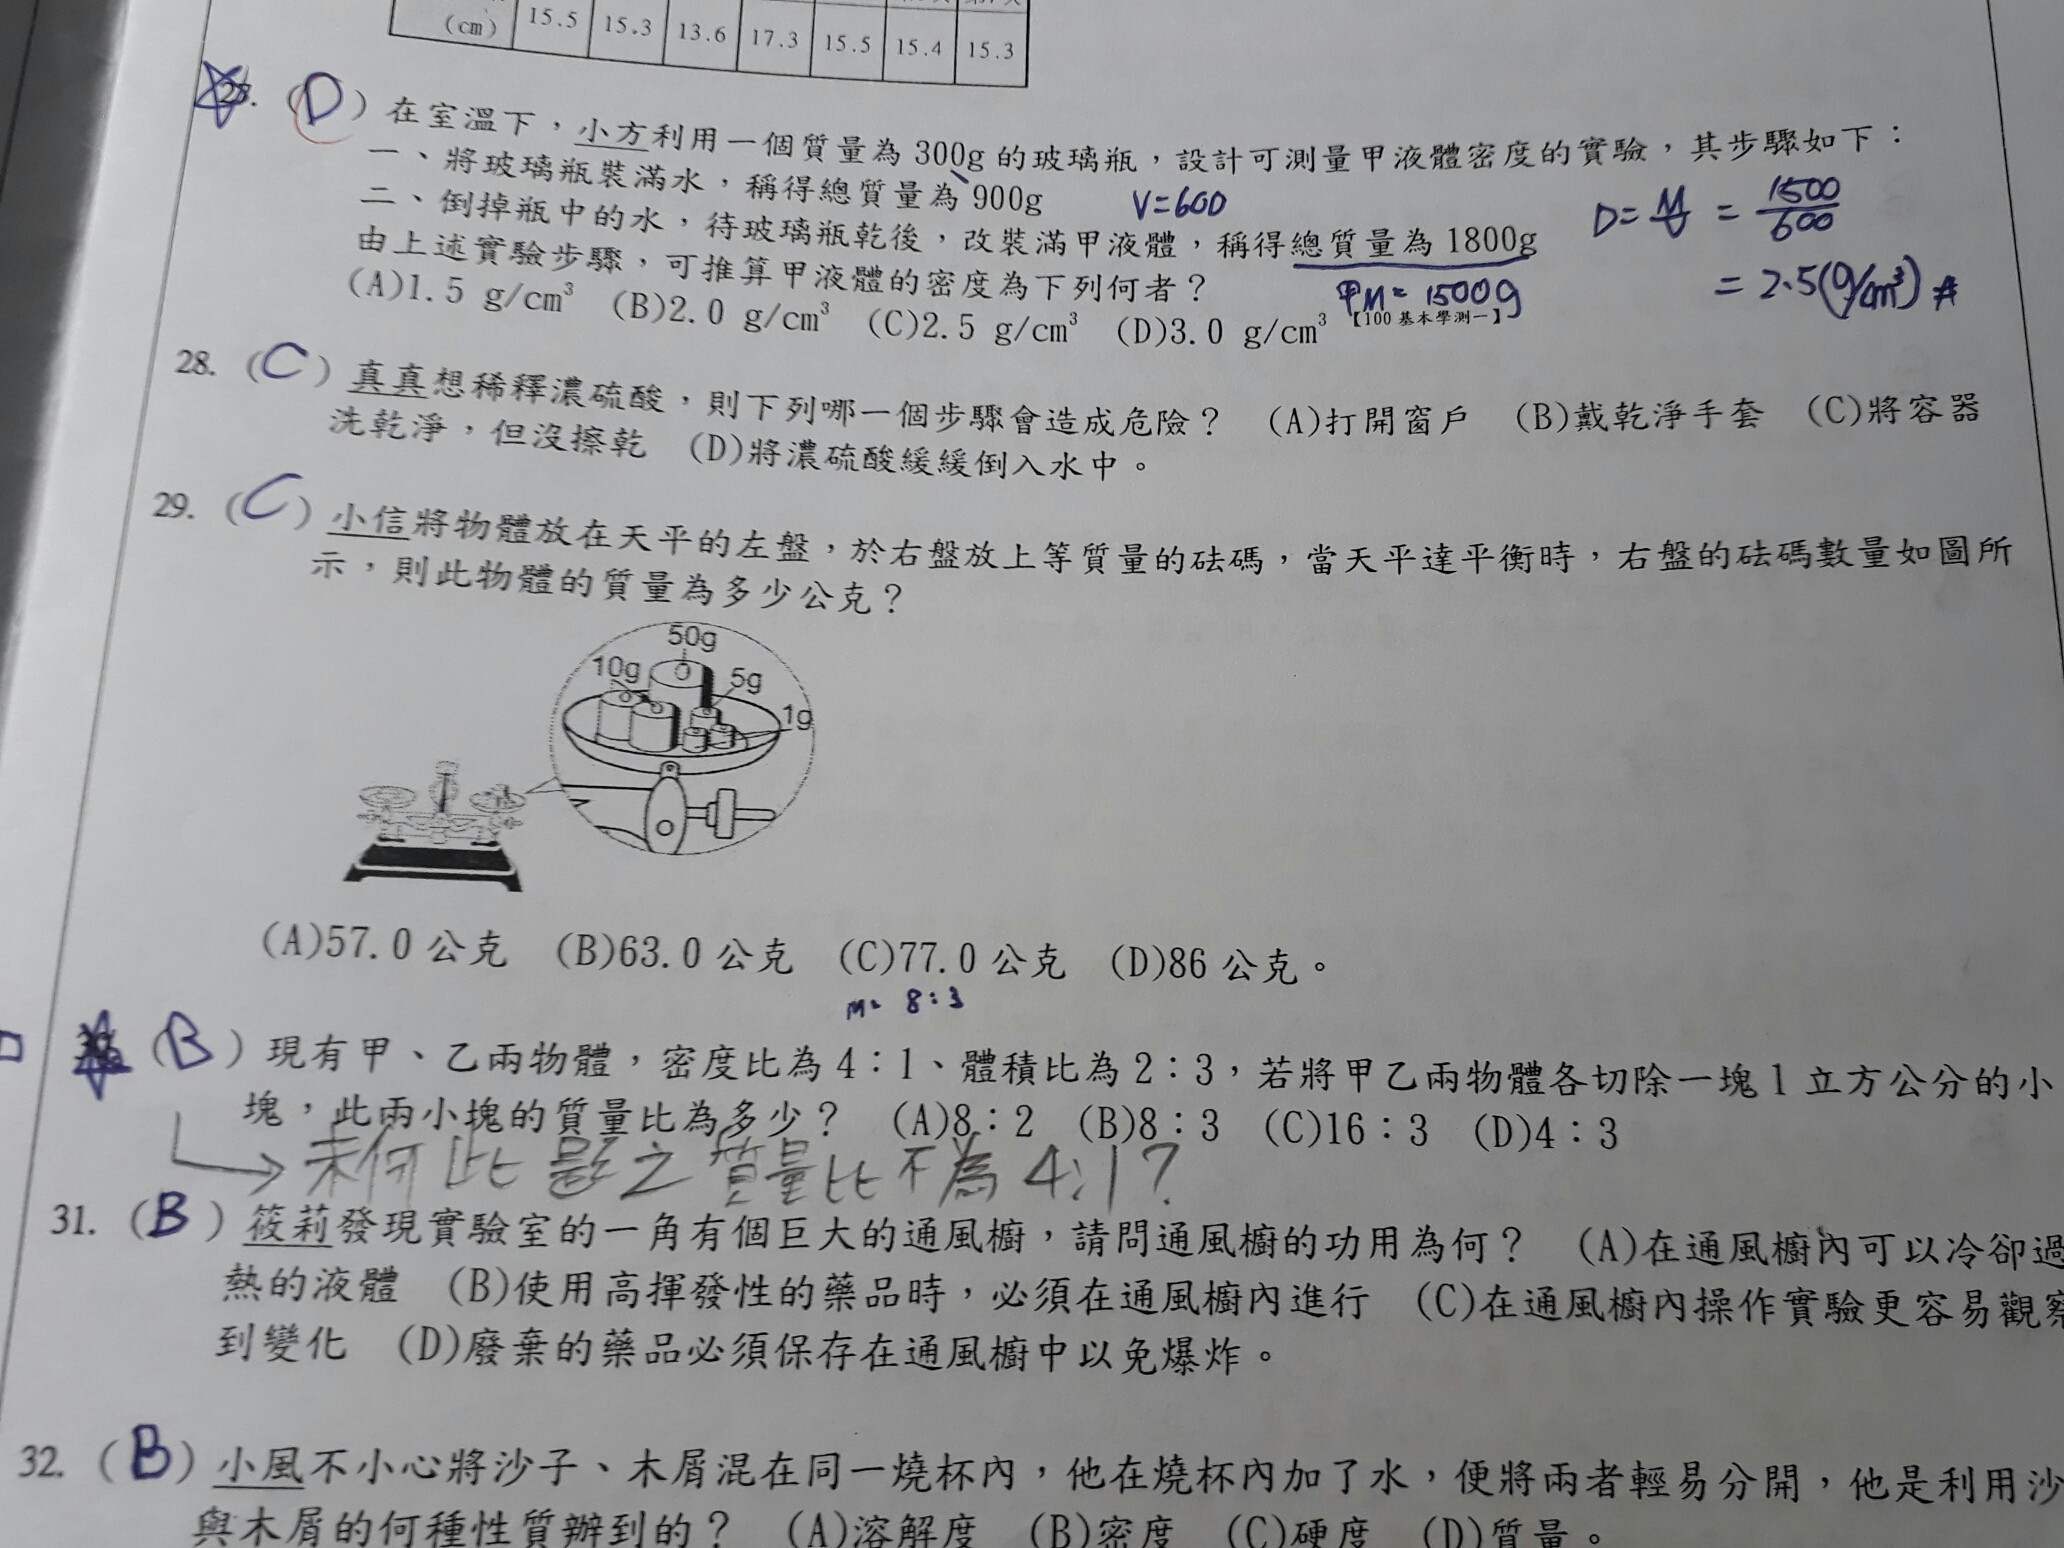 (cm) 15.5 15.3 13.6 17.3 15.5 15.4 15.3
(D) 在室溫下，小方利用一個質量為 300g 的玻璃瓶，設計可測量甲液體密度的實驗，其步驟如下：
一、將玻璃瓶裝滿水，稱得總質量為 900g V=600
二、倒掉瓶中的水，待玻璃瓶乾後，改裝滿甲液體，稱得總質量為 1800g
D=M/V = 1500/600
= 2.5(g/cm³) #
由上述實驗步驟，可推算甲液體的密度為下列何者？ 甲M= 1500g
(A)1.5 g/cm³ (B)2.0 g/cm³ (C)2.5 g/cm³ (D)3.0 g/cm³ 【100 基本學測一】
28. (C) 真真想稀釋濃硫酸，則下列哪一個步驟會造成危險？ (A)打開窗戶 (B)戴乾淨手套 (C)將容器
洗乾淨，但沒擦乾 (D)將濃硫酸緩緩倒入水中。
29. (C) 小信將物體放在天平的左盤，於右盤放上等質量的砝碼，當天平達平衡時，右盤的砝碼數量如圖所
示，則此物體的質量為多少公克？
50g
10g
5g
1g
(A)57.0 公克 (B)63.0 公克 (C)77.0 公克 (D)86 公克。
M= 8:3
(B) 現有甲、乙兩物體，密度比為 4：1、體積比為 2：3，若將甲乙兩物體各切除一塊 1 立方公分的小
塊，此兩小塊的質量比為多少？ (A)8：2 (B)8：3 (C)16：3 (D)4：3
何此題之質量比不為4:1?
31. (B) 筱莉發現實驗室的一角有個巨大的通風櫥，請問通風櫥的功用為何？ (A)在通風櫥內可以冷卻過
熱的液體 (B)使用高揮發性的藥品時，必須在通風櫥內進行 (C)在通風櫥內操作實驗更容易觀察
到變化 (D)廢棄的藥品必須保存在通風櫥中以免爆炸。
32. (B) 小風不小心將沙子、木屑混在同一燒杯內，他在燒杯內加了水，便將兩者輕易分開，他是利用沙
與木屑的何種性質辦到的？ (A)溶解度 (B)密度 (C)硬度 (D)質量。